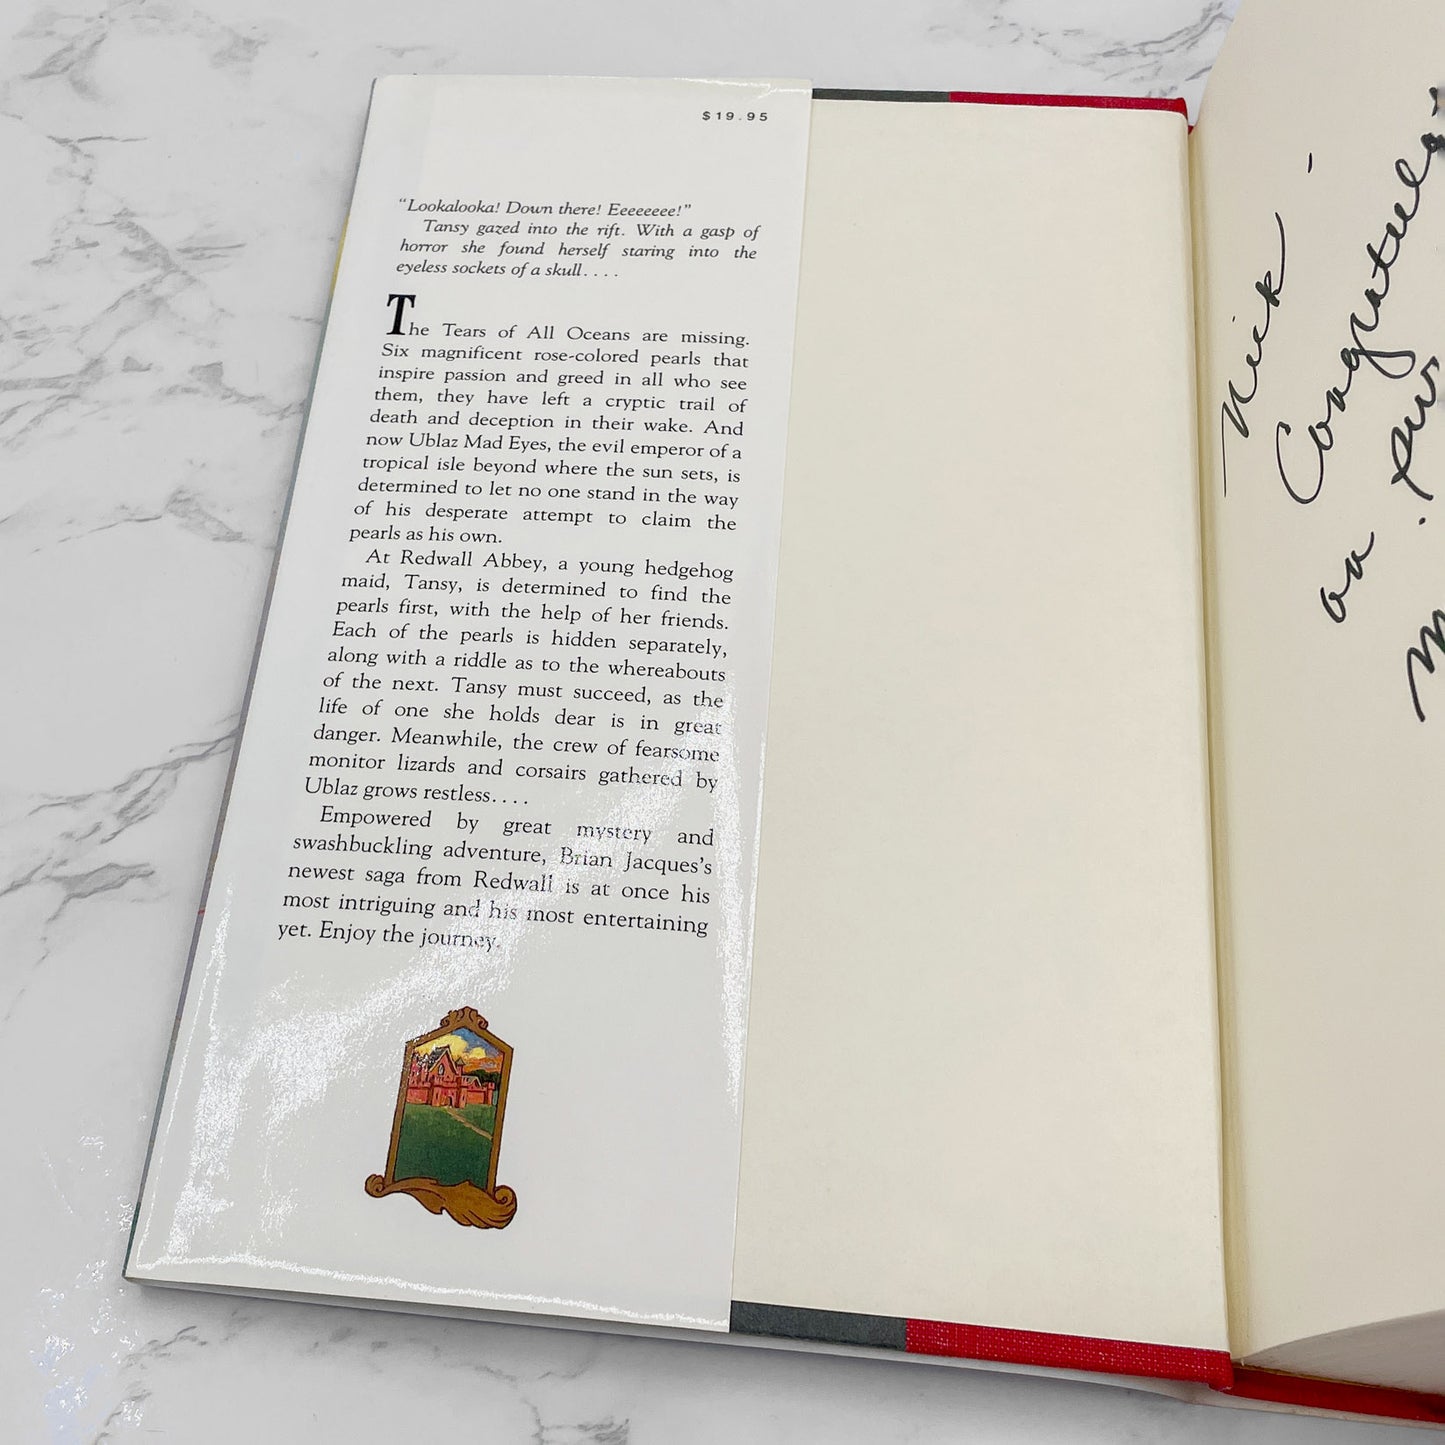 $19.95
“Lookalooka! Down there! Eeeeeeee!”
Tansy gazed into the rift. With a gasp of
horror she found herself staring into the
eyeless sockets of a skull. . . .
The Tears of All Oceans are missing.
Six magnificent rose-colored pearls that
inspire passion and greed in all who see
them, they have left a cryptic trail of
death and deception in their wake. And
now Ublaz Mad Eyes, the evil emperor of a
tropical isle beyond where the sun sets, is
determined to let no one stand in the way
of his desperate attempt to claim the
pearls as his own.
At Redwall Abbey, a young hedgehog
maid, Tansy, is determined to find the
pearls first, with the help of her friends.
Each of the pearls is hidden separately,
along with a riddle as to the whereabouts
of the next. Tansy must succeed, as the
life of one she holds dear is in great
danger. Meanwhile, the crew of fearsome
monitor lizards and corsairs gathered by
Ublaz grows restless. . . .
Empowered by great mystery and
swashbuckling adventure, Brian Jacques’s
newest saga from Redwall is at once his
most intriguing and his most entertaining
yet. Enjoy the journey.
Nick -